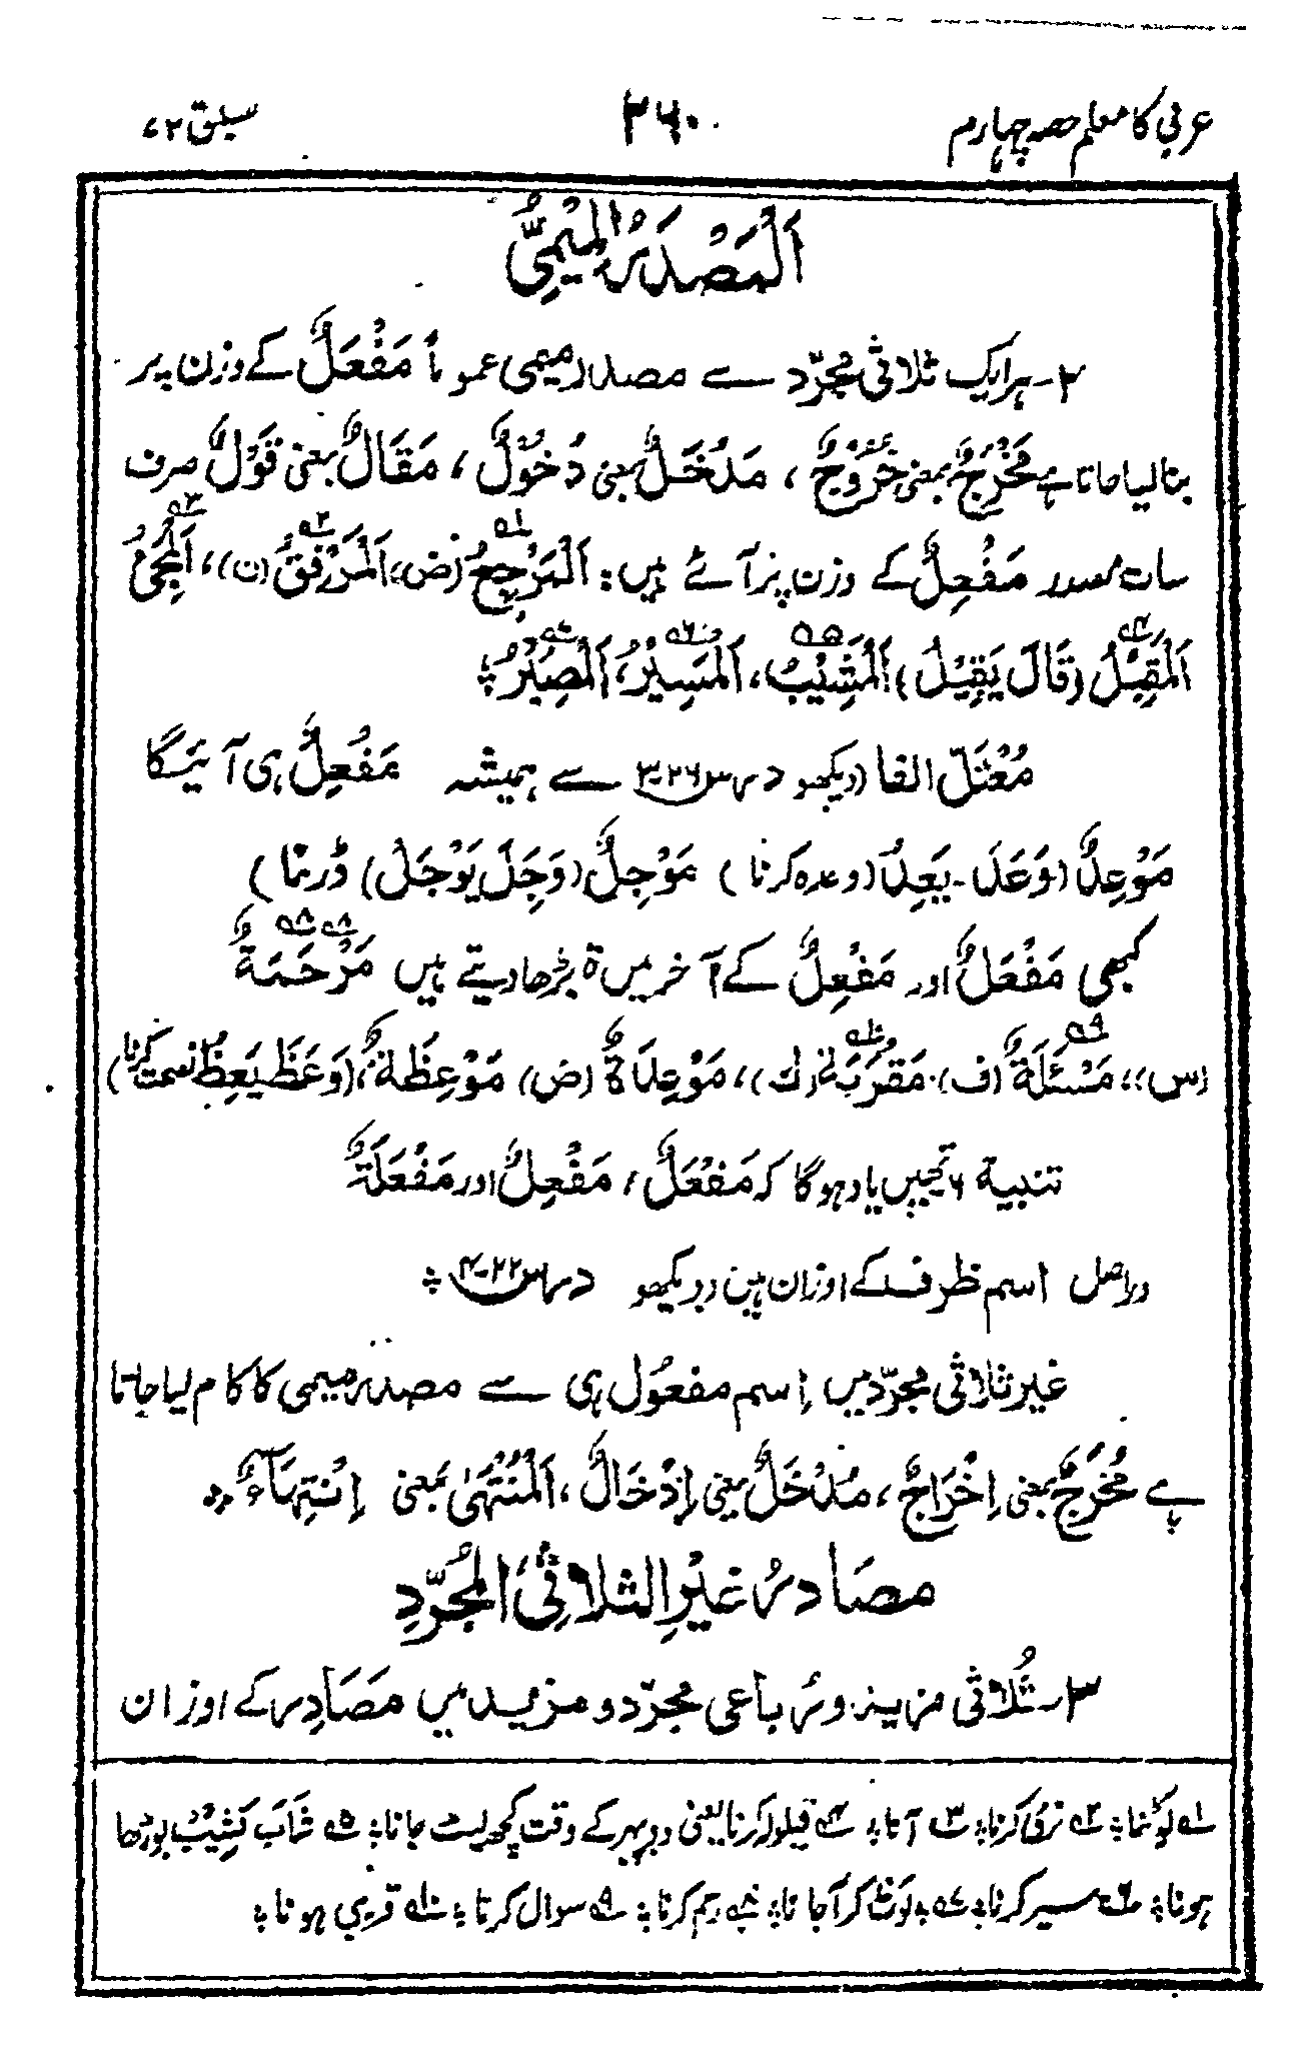 عربی کا معلم حصہ چہارم
۲۶۰
سبق ۷۲
اَلْمَصْدَرُ الْمِیْمِیُّ
۲۔ ہر ایک ثلاثی مجرّد سے مصدر میمی عموماً مَفْعَلٌ کے وزن پر
بنا لیا جاتا ہے مَخْرَجٌ بمعنی خُرُوْجٌ ، مَدْخَلٌ بمعنی دُخُوْلٌ ، مَقَالٌ بمعنی قَوْلٌ صرف
سات مصدر مَفْعِلٌ کے وزن پر آئے ہیں: اَلْمَرْجِعُ۱ (ض) اَلْمَرْفِقُ۲ (ن)، اَلْمَجِیْءُ۳
اَلْمَقِیْلُ۴ (قَالَ یَقِیْلُ) اَلْمَشِیْبُ۵، اَلْمَسِیْرُ۶، اَلْمَصِیْرُ۷ ؞
مُعْتَلّ الفا (دیکھو درس ۲۶-۳ سے ہمیشہ مَفْعِلٌ ہی آئیگا
مَوْعِدٌ (وَعَدَ - یَعِدُ (وعدہ کرنا) مَوْجِلٌ (وَجِلَ یَوْجَلُ) ڈرنا)
کبھی مَفْعَلٌ اور مَفْعِلٌ کے آخر میں ة بڑھا دیتے ہیں مَرْحَمَةٌ۸
(س)، مَسْئَلَةٌ۹ (ف)، مَقْرَبَةٌ۱۰ (ك)، مَوْعِدَةٌ (ض) مَوْعِظَةٌ، (وَعَظَ یَعِظُ نصیحت کرنا)
تنبیہ ۶ تمہیں یاد ہوگا کہ مَفْعَلٌ ، مَفْعِلٌ اور مَفْعَلَةٌ
دراصل اسم ظرف کے اوزان ہیں (دیکھو درس ۲۲-۴ ؞
غیر ثلاثی مجرّد میں اِسم مفعُول ہی سے مصدر میمی کا کام لیا جاتا
ہے مُخْرَجٌ بمعنی اِخْرَاجٌ ، مُدْخَلٌ بمعنی اِدْخَالٌ ، اَلْمُنْتَهٰی بمعنی اِنْتِهَآءٌ ؞
مصَادرُ غیْرِ الثلاثِیّ المجُرّدِ
۳۔ ثُلاثی مزید و رُباعی مجرّد و مزید میں مَصَادِر کے اوزان
۱ لَوٹنا ؞ ۲ نرمی کرنا ؞ ۳ آنا ؞ ۴ قیلولہ کرنا یعنی دوپہر کے وقت کچھ لیٹ جانا ؞ ۵ شَابَ یَشِیْبُ بوڑھا
ہونا ؞ ۶ سیر کرنا ؞ ۷ لَوٹ کر آجانا ؞ ۸ رحم کرنا ؞ ۹ سوال کرنا ؞ ۱۰ قریب ہونا ؞